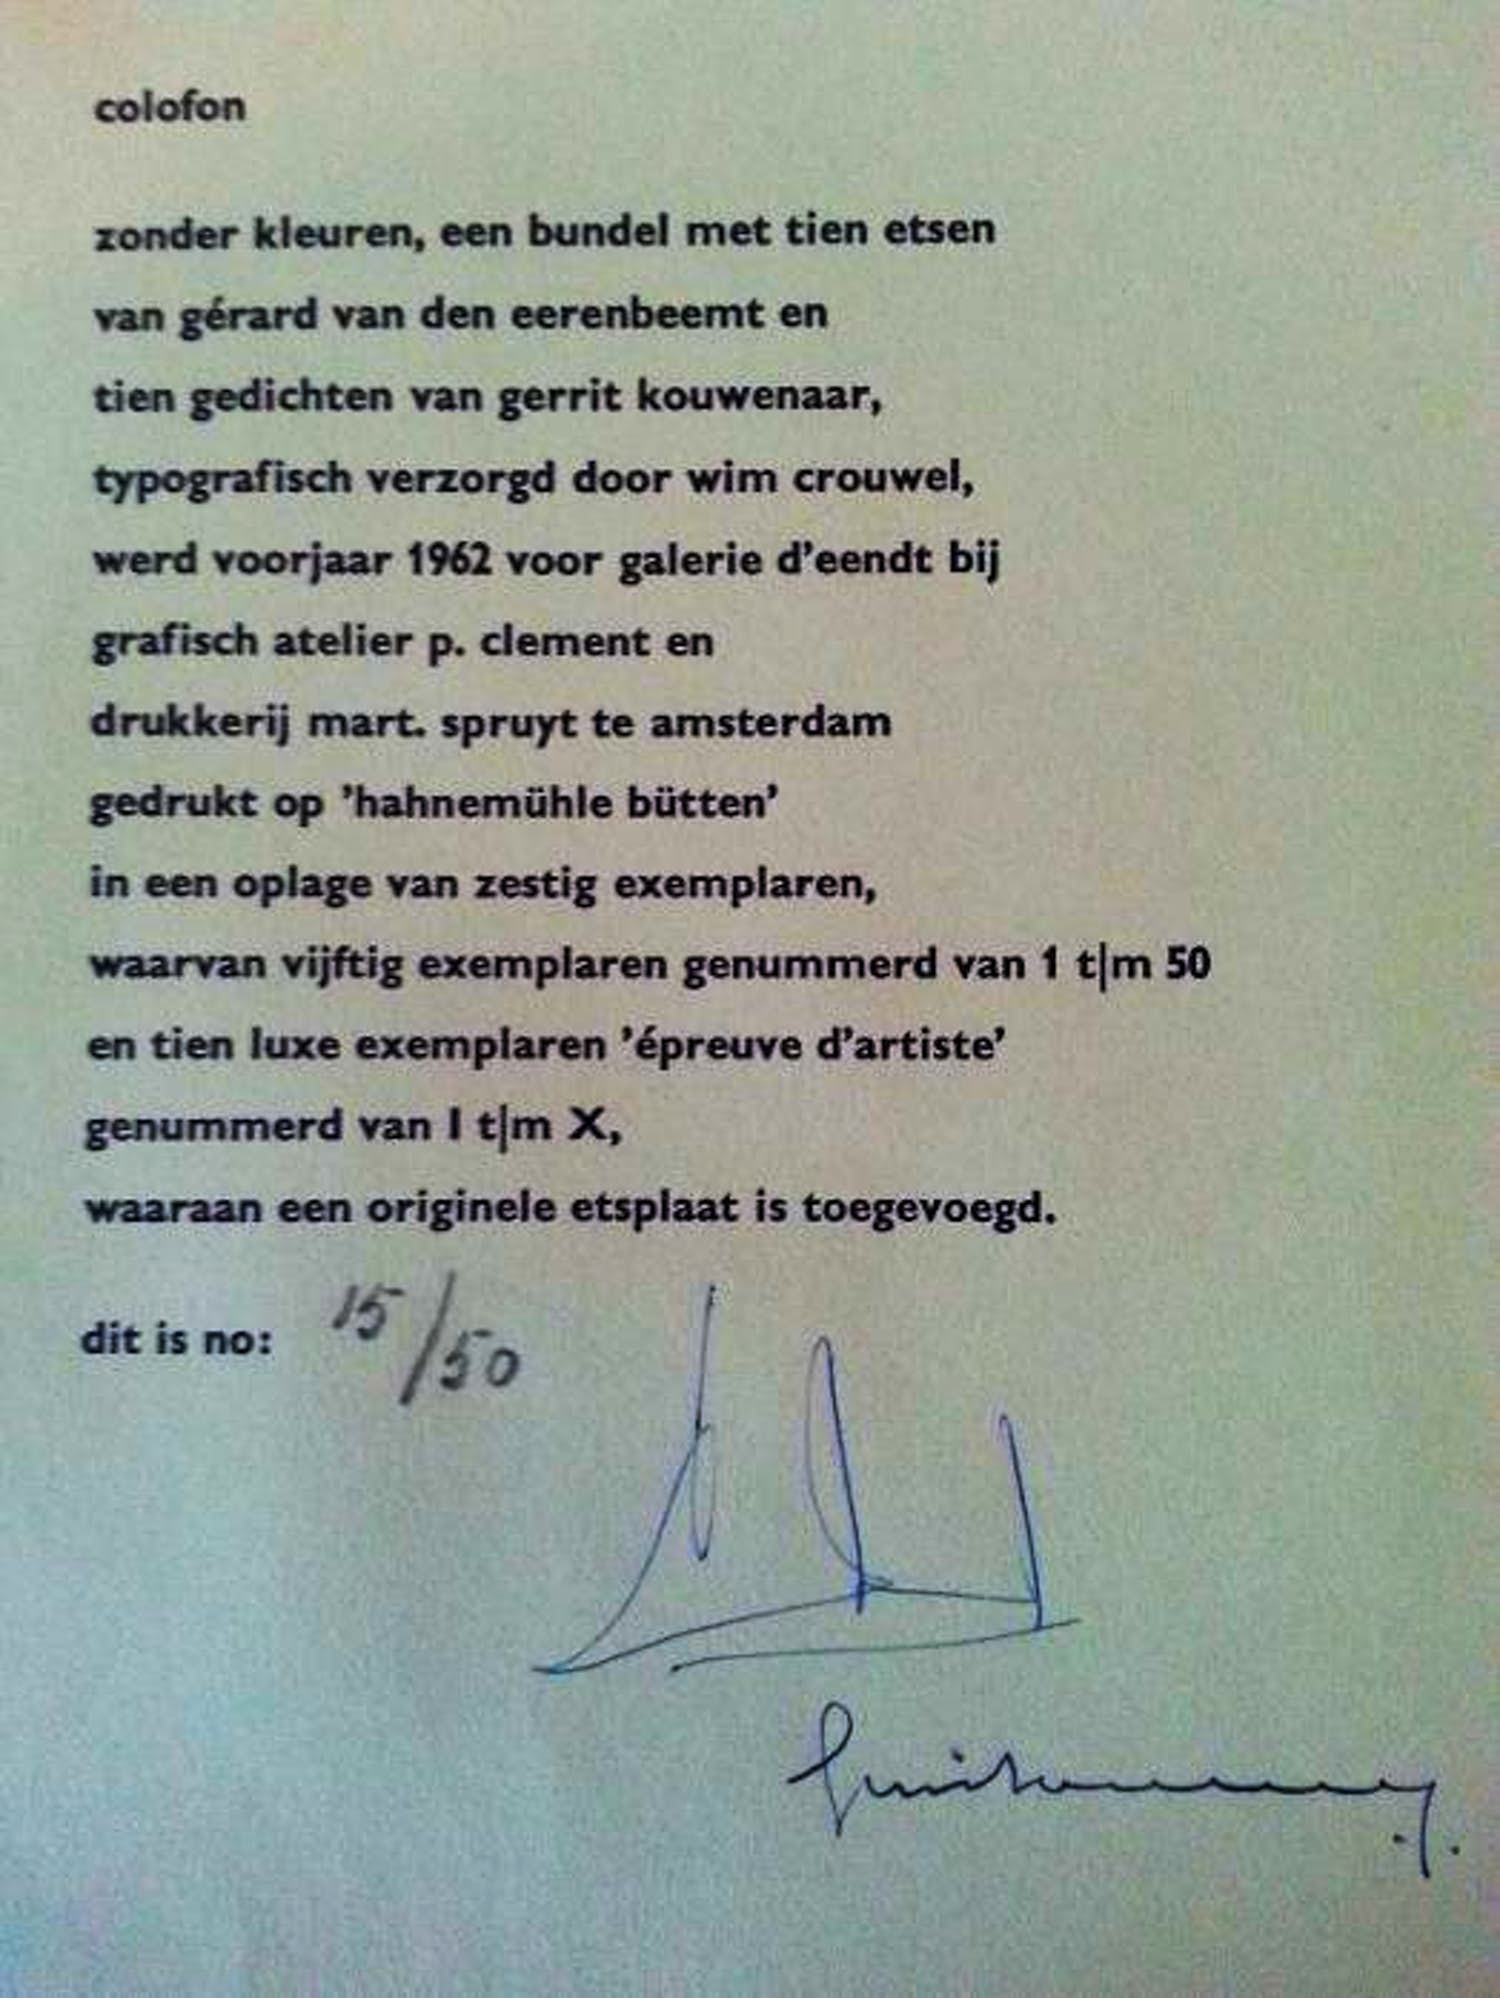 colofon
zonder kleuren, een bundel met tien etsen
van gérard van den eerenbeemt en
tien gedichten van gerrit kouwenaar,
typografisch verzorgd door wim crouwel,
werd voorjaar 1962 voor galerie d'eendt bij
grafisch atelier p. clement en
drukkerij mart. spruyt te amsterdam
gedrukt op 'hahnemühle bütten'
in een oplage van zestig exemplaren,
waarvan vijftig exemplaren genummerd van 1 t|m 50
en tien luxe exemplaren 'épreuve d'artiste'
genummerd van I t|m X,
waaraan een originele etsplaat is toegevoegd.
dit is no: 15/50